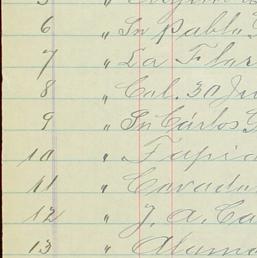 6 " Sn Pablo
7 " La Flor
8 " Cal. 30 Ju
9 " Sn Cárlos G
10 " Tapia
11 " Covadu
12 " J. A. Ca
13 " Alama